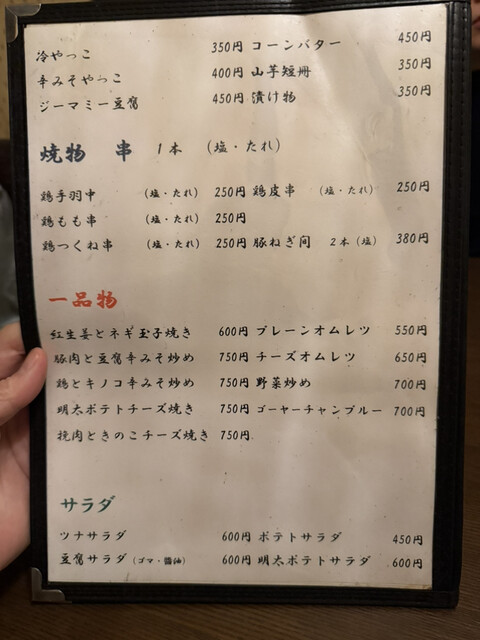 冷やっこ 350円 コーンバター 450円
辛みそやっこ 400円 山芋短冊 350円
ジーマミー豆腐 450円 漬け物 350円
焼物 串 1本 (塩・たれ)
鶏手羽中 (塩・たれ) 250円 鶏皮串 (塩・たれ) 250円
鶏もも串 (塩・たれ) 250円
鶏つくね串 (塩・たれ) 250円 豚ねぎ間 2本(塩) 380円
一品物
紅生姜とネギ玉子焼き 600円 プレーンオムレツ 550円
豚肉と豆腐辛みそ炒め 750円 チーズオムレツ 650円
鶏とキノコ辛みそ炒め 750円 野菜炒め 700円
明太ポテトチーズ焼き 750円 ゴーヤーチャンプルー 700円
挽肉ときのこチーズ焼き 750円
サラダ
ツナサラダ 600円 ポテトサラダ 450円
豆腐サラダ(ゴマ・醤油) 600円 明太ポテトサラダ 600円